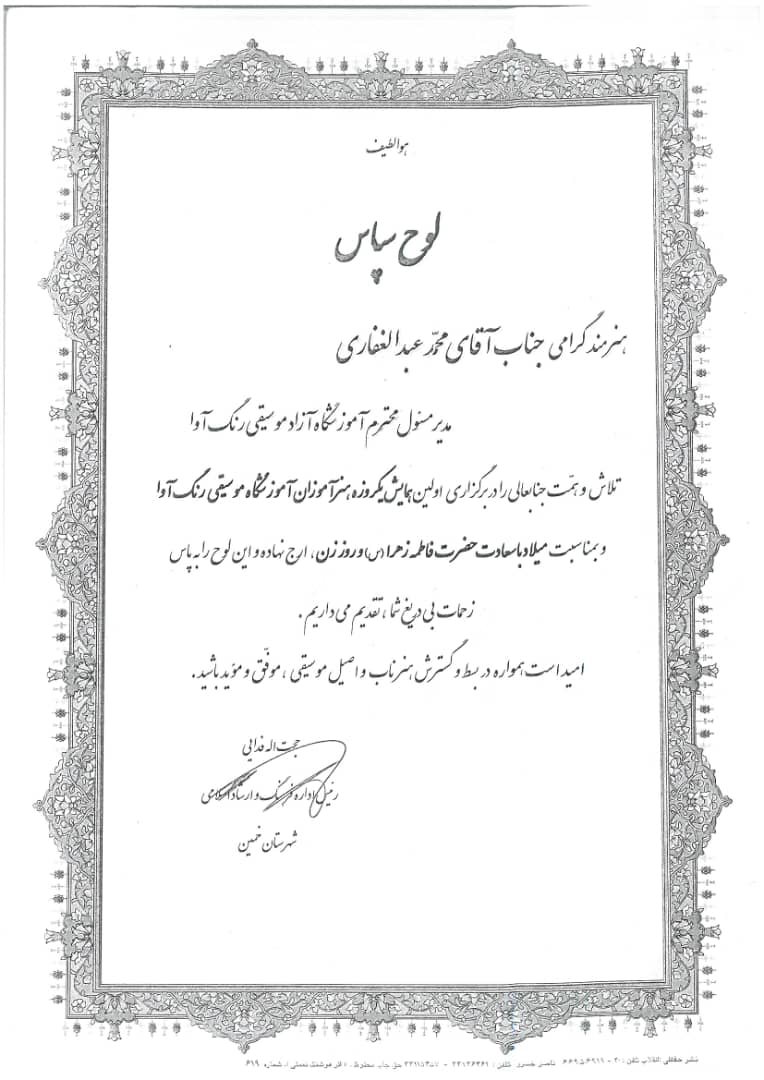 هوالطیف
لوح سپاس
هنرمند گرامی جناب آقای محمّد عبدالغفاری
مدیر مسئول محترم آموزشگاه آزاد موسیقی رنگ آوا
تلاش و همّت جنابعالی را در برگزاری اولین همایش یکروزه هنرآموزان آموزشگاه موسیقی رنگ آوا
و بمناسبت میلاد با سعادت حضرت فاطمه زهرا (س) و روز زن، ارج نهاده و این لوح را به پاس
زحمات بی دریغ شما، تقدیم می داریم.
امید است همواره در بسط و گسترش هنر ناب و اصیل موسیقی، موفّق و مؤید باشید.
حجت اله فدایی
رئیس اداره فرهنگ و ارشاد اسلامی
شهرستان خمین
نشر حافظی: انقلاب تلفن: ۲۰ - ۶۶۹۵۴۹۱۱ ناصر خسرو تلفن: ۳۳۱۳۶۳۶۱ - ۳۳۱۱۵۳۵۷ حق چاپ محفوظ. شماره ۶۱۹